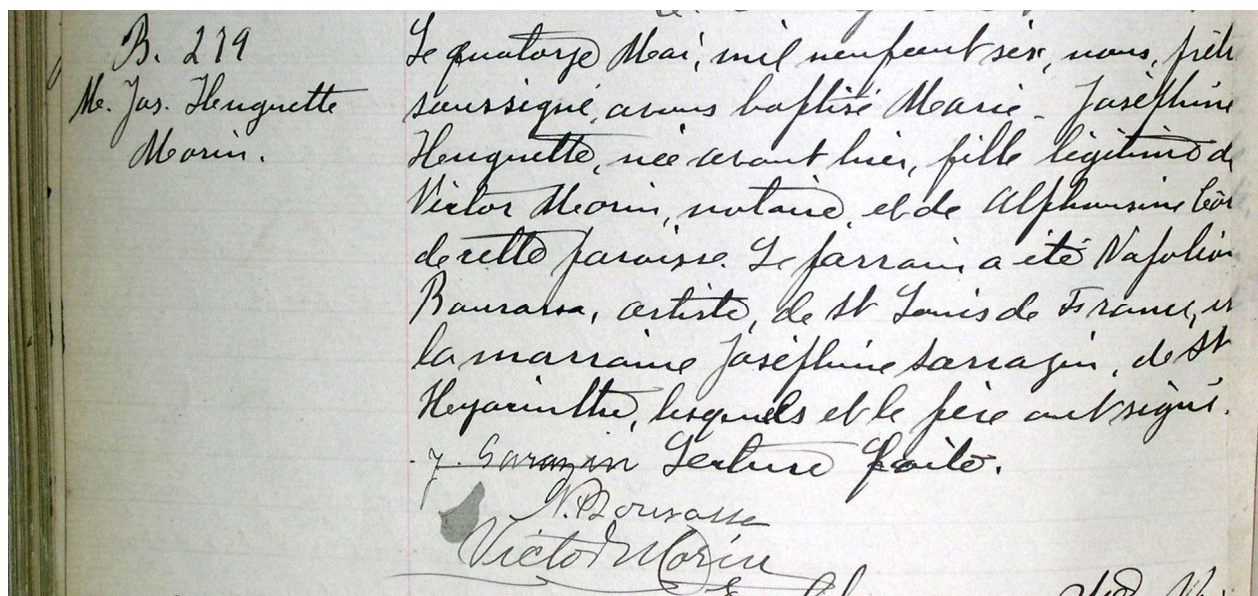 B. 219
M. Jos. Henguette
Morin.
Le quatorze Mai, mil neuf cent six, nous, prêtr
soussigné, avons baptisé Marie - Joséphine
Henguette, née avant hier, fille légitime de
Victor Morin, notaire, et de Alphonsine Côt
de cette paroisse. Le parrain a été Napoléon
Bourassa, artiste, de St Louis de France, et
la marraine Joséphine Sarrazin, de St
Hyacinthe, lesquels et le père ont signé.
J. Sarazin Lecture faite.
N. Bourassa
Victor Morin